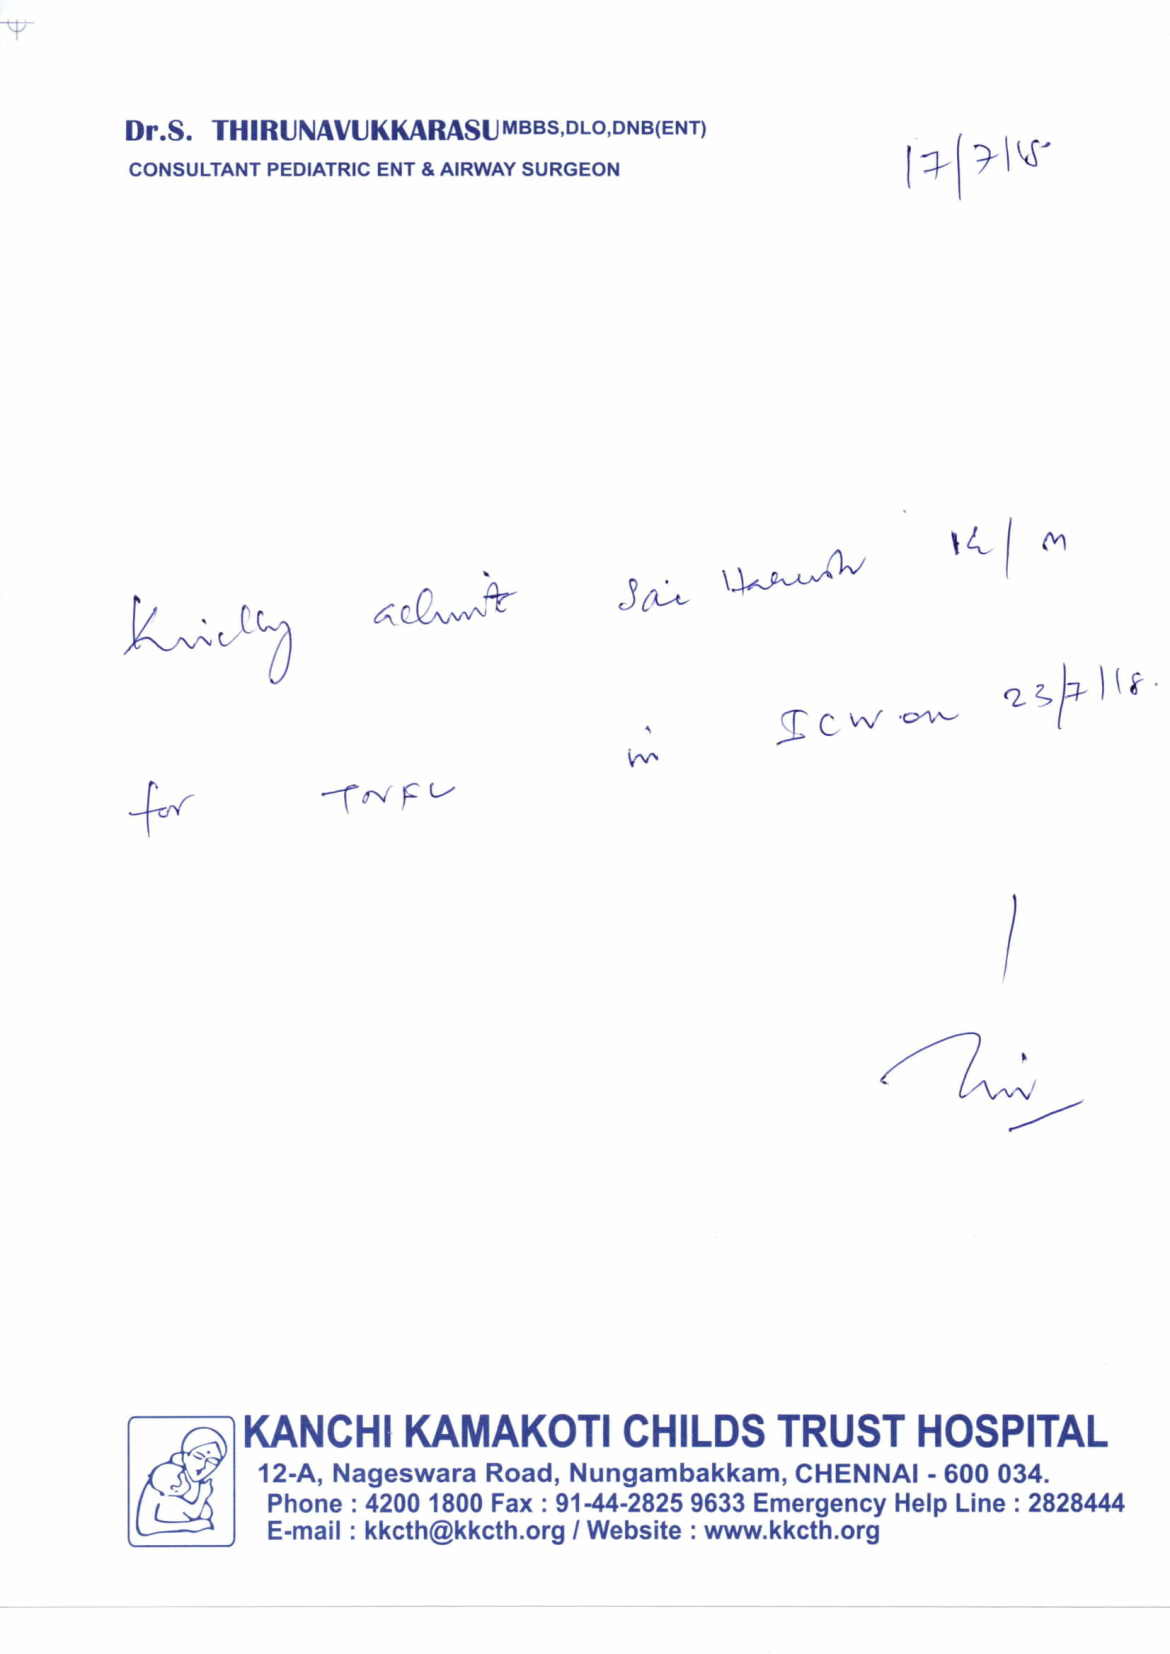 Dr.S. THIRUNAVUKKARASU MBBS,DLO,DNB(ENT)
CONSULTANT PEDIATRIC ENT & AIRWAY SURGEON
17/7/18
Kindly admit Sai / M
for TNFL in ICW on 23/7/18.
KANCHI KAMAKOTI CHILDS TRUST HOSPITAL
12-A, Nageswara Road, Nungambakkam, CHENNAI - 600 034.
Phone : 4200 1800 Fax : 91-44-2825 9633 Emergency Help Line : 2828444
E-mail : kkcth@kkcth.org / Website : www.kkcth.org